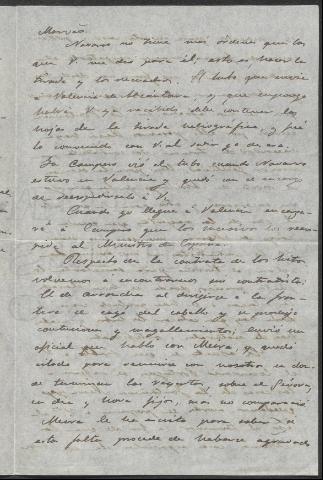 Navarro no tiene mas órdenes que las
que V. me dió para él, esto es hacer la
tirada y los recuadros. El tubo que envié
á Valencia de Alcántara y que supongo
habrá V. ya recibido debe contener las
hojas de la tirada heliográfica, y fué
lo convenido con V. al salir yo de esa.
Campero vió el tubo cuando Navarro
estuvo en Valencia y quedó con el encargo
de á V.
Cuando yo llegue á Valencia
á Campero que los
al Ministro de España.
Respecto de la contrata de los hitos
volvemos á encontrarnos sin contratista:
El de al dirigirse á la fron-
tera se cayó del caballo y se produjo
contusiones y magullamientos; envió un
oficial que habló con Meira y quedó
citado para reunirse con nosotros en don-
de terminan las vegas, sobre el
en dia y hora fijos, mas no compareció
Meira le ha escrito para saber si
esta falta procede de haberse agravado